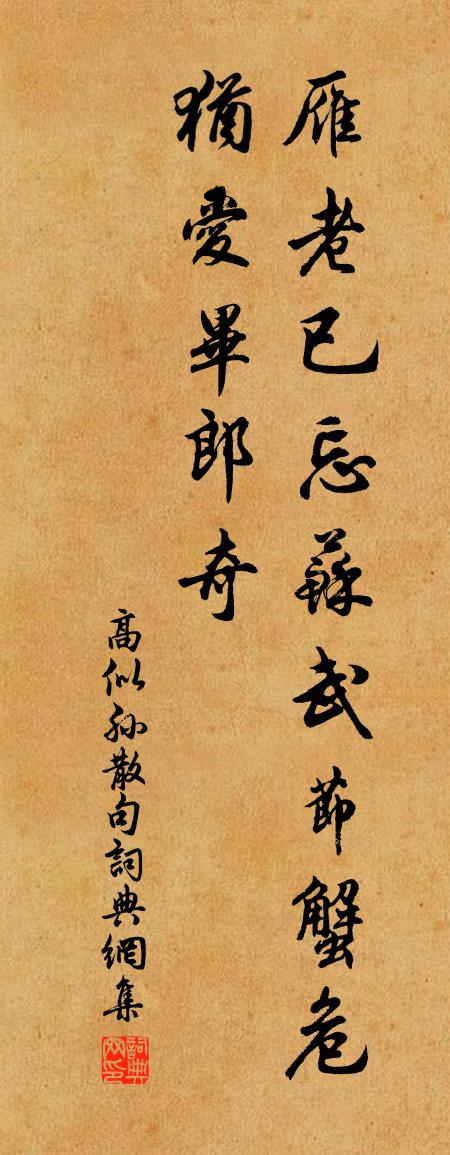 雁老已忘蘇武節蟹危
猶愛畢郎奇
高似孫散句詞典網集
詞典网印